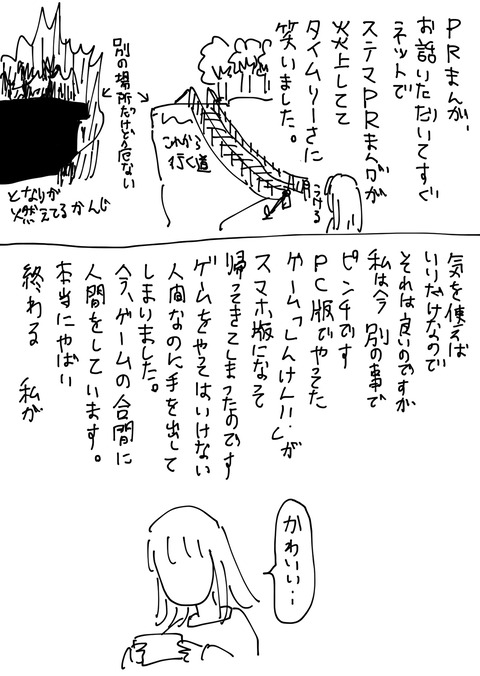 PRまんが、
お話いただいてすぐ
ネットで
ステマPRまんがが
炎上してて
タイムリーさに
笑いました。
うける
これから
行く道
別の場所だけど危ない
となりが
燃えてるかんじ
気を使えば
いいだけなので
それは良いのですが
私は今 別の事で
ピンチです
PC版でやってた
ゲーム「しんけん!!」が
スマホ版になって
帰ってきてしまったのです
ゲームをやってはいけない
人間なのに手を出して
しまりました。
今、ゲームの合間に
人間をしています。
本当にやばい
終わる 私が
かわいい…